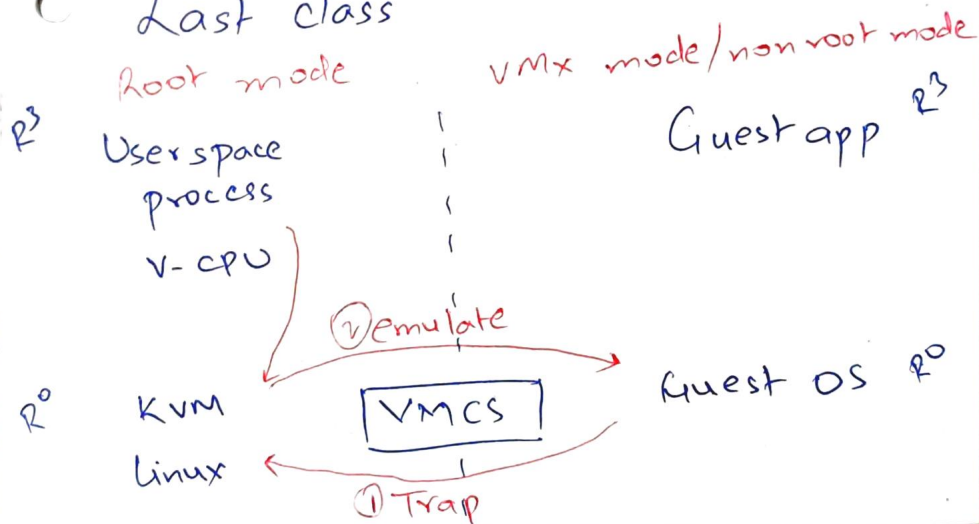 Last class
Root mode
VMX mode/non root mode
R3
User space
process
V-CPU
Guest app R3
② emulate
R0
KVM
Linux
VMCS
Guest OS R0
① Trap